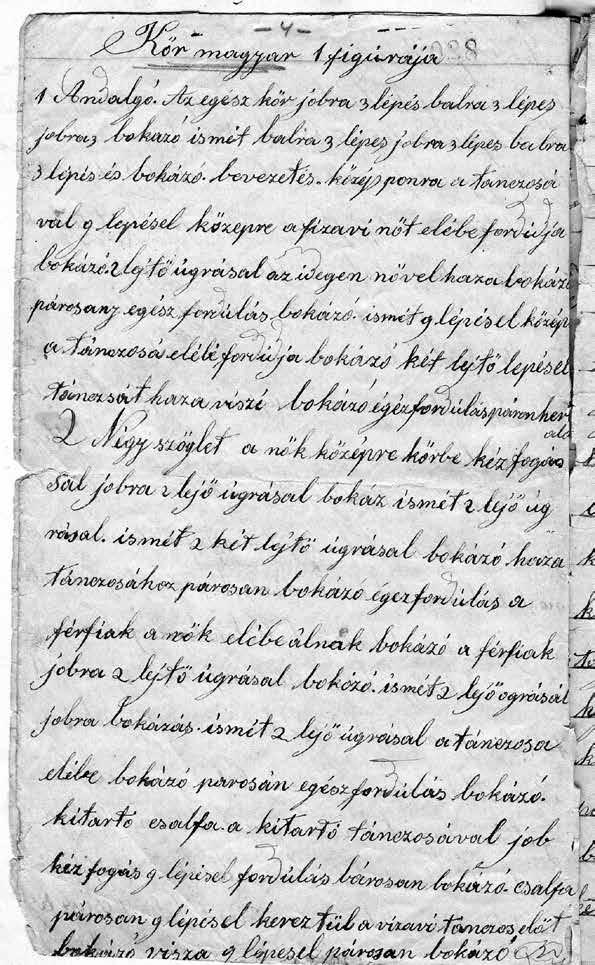 - 4 -
Kör magyar 1 figúrája
1 Andalgó. Az egész kör jobra 3 lépés balra 3 lépes
jobra 3 bokázó ismét balra 3 lépes jobra 3 lépes balra
3 lépés és bokázó. bevezetés. közép ponra a tánczosá
val 9 lepésel középre a fizavi nőt elébe fordidja
bokázó. 2 lejtő úgrásal az idegen nővel haza bokázó
párosan egész fordúlás bokázó. ismét 9 lépésel közép
a tánczosá elélé fordúdja bokázó két lejtő lepésel
tánczsát haza viszi bokázó égéz fordúlás páron her
2 Négy szöglet a nők középre körbe kéz fogás
sal jobra 2 lejő úgrásal bokáz ismét 2 lejő úg
rásal. ismét 2 két lejtő úgrásal bokázó haza
tánczosához párosan bokázó égéz fordúlás a
férfiak a nők elébe álnak bokázó a férfiak
jobra 2 lejtő úgrásal bokózó. ismét 2 lejő ográsál
jobra bokázás. ismét 2 lejő úgrásal a tánczosa
elébe bokázó parosán egész fordúlás bokázó.
kitartó csalfa. a kitartó tánczosával job
kéz fogás 9 lépésel fordúlás bárosan bokázó. csalfa
párosan 9 lépésel kereztül a vizavi tánczos elöt
bokázó visza 9 lépesel párosan bokázó